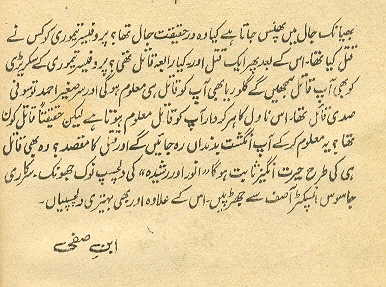 بھیانک جال میں پھنس جاتا ہے کیا وہ در حقیقت جال تھا؟ پروفیسر تیموری کو کس نے
قتل کیا تھا۔ اس کے بعد پھر ایک قتل اور۔ کیا رابعہ قاتل تھی؟ پروفیسر تیموری کے سکریٹری
کو بھی آپ قاتل سمجھیں گے گلوریا بھی آپ کو قاتل ہی معلوم ہوگی اور صغیر احمد تو سو فی
صدی قاتل تھا۔ اس ناول کا ہر کردار آپ کو قاتل معلوم ہوتا ہے لیکن حقیقتاً قاتل کون
تھا؟ یہ معلوم کرکے آپ انگشت بدنداں رہ جائیں گے اور قتل کا مقصد؟ وہ بھی قاتل
ہی کی طرح حیرت انگیز ثابت ہوگا «انور اور رشیدہ» کی دلچسپ نوک جھونک۔ سرکاری
جاسوس انسپکٹر آصف سے جھڑپیں۔ اس کے علاوہ اور بھی بہتیری دلچسپیاں۔
ابن صفی